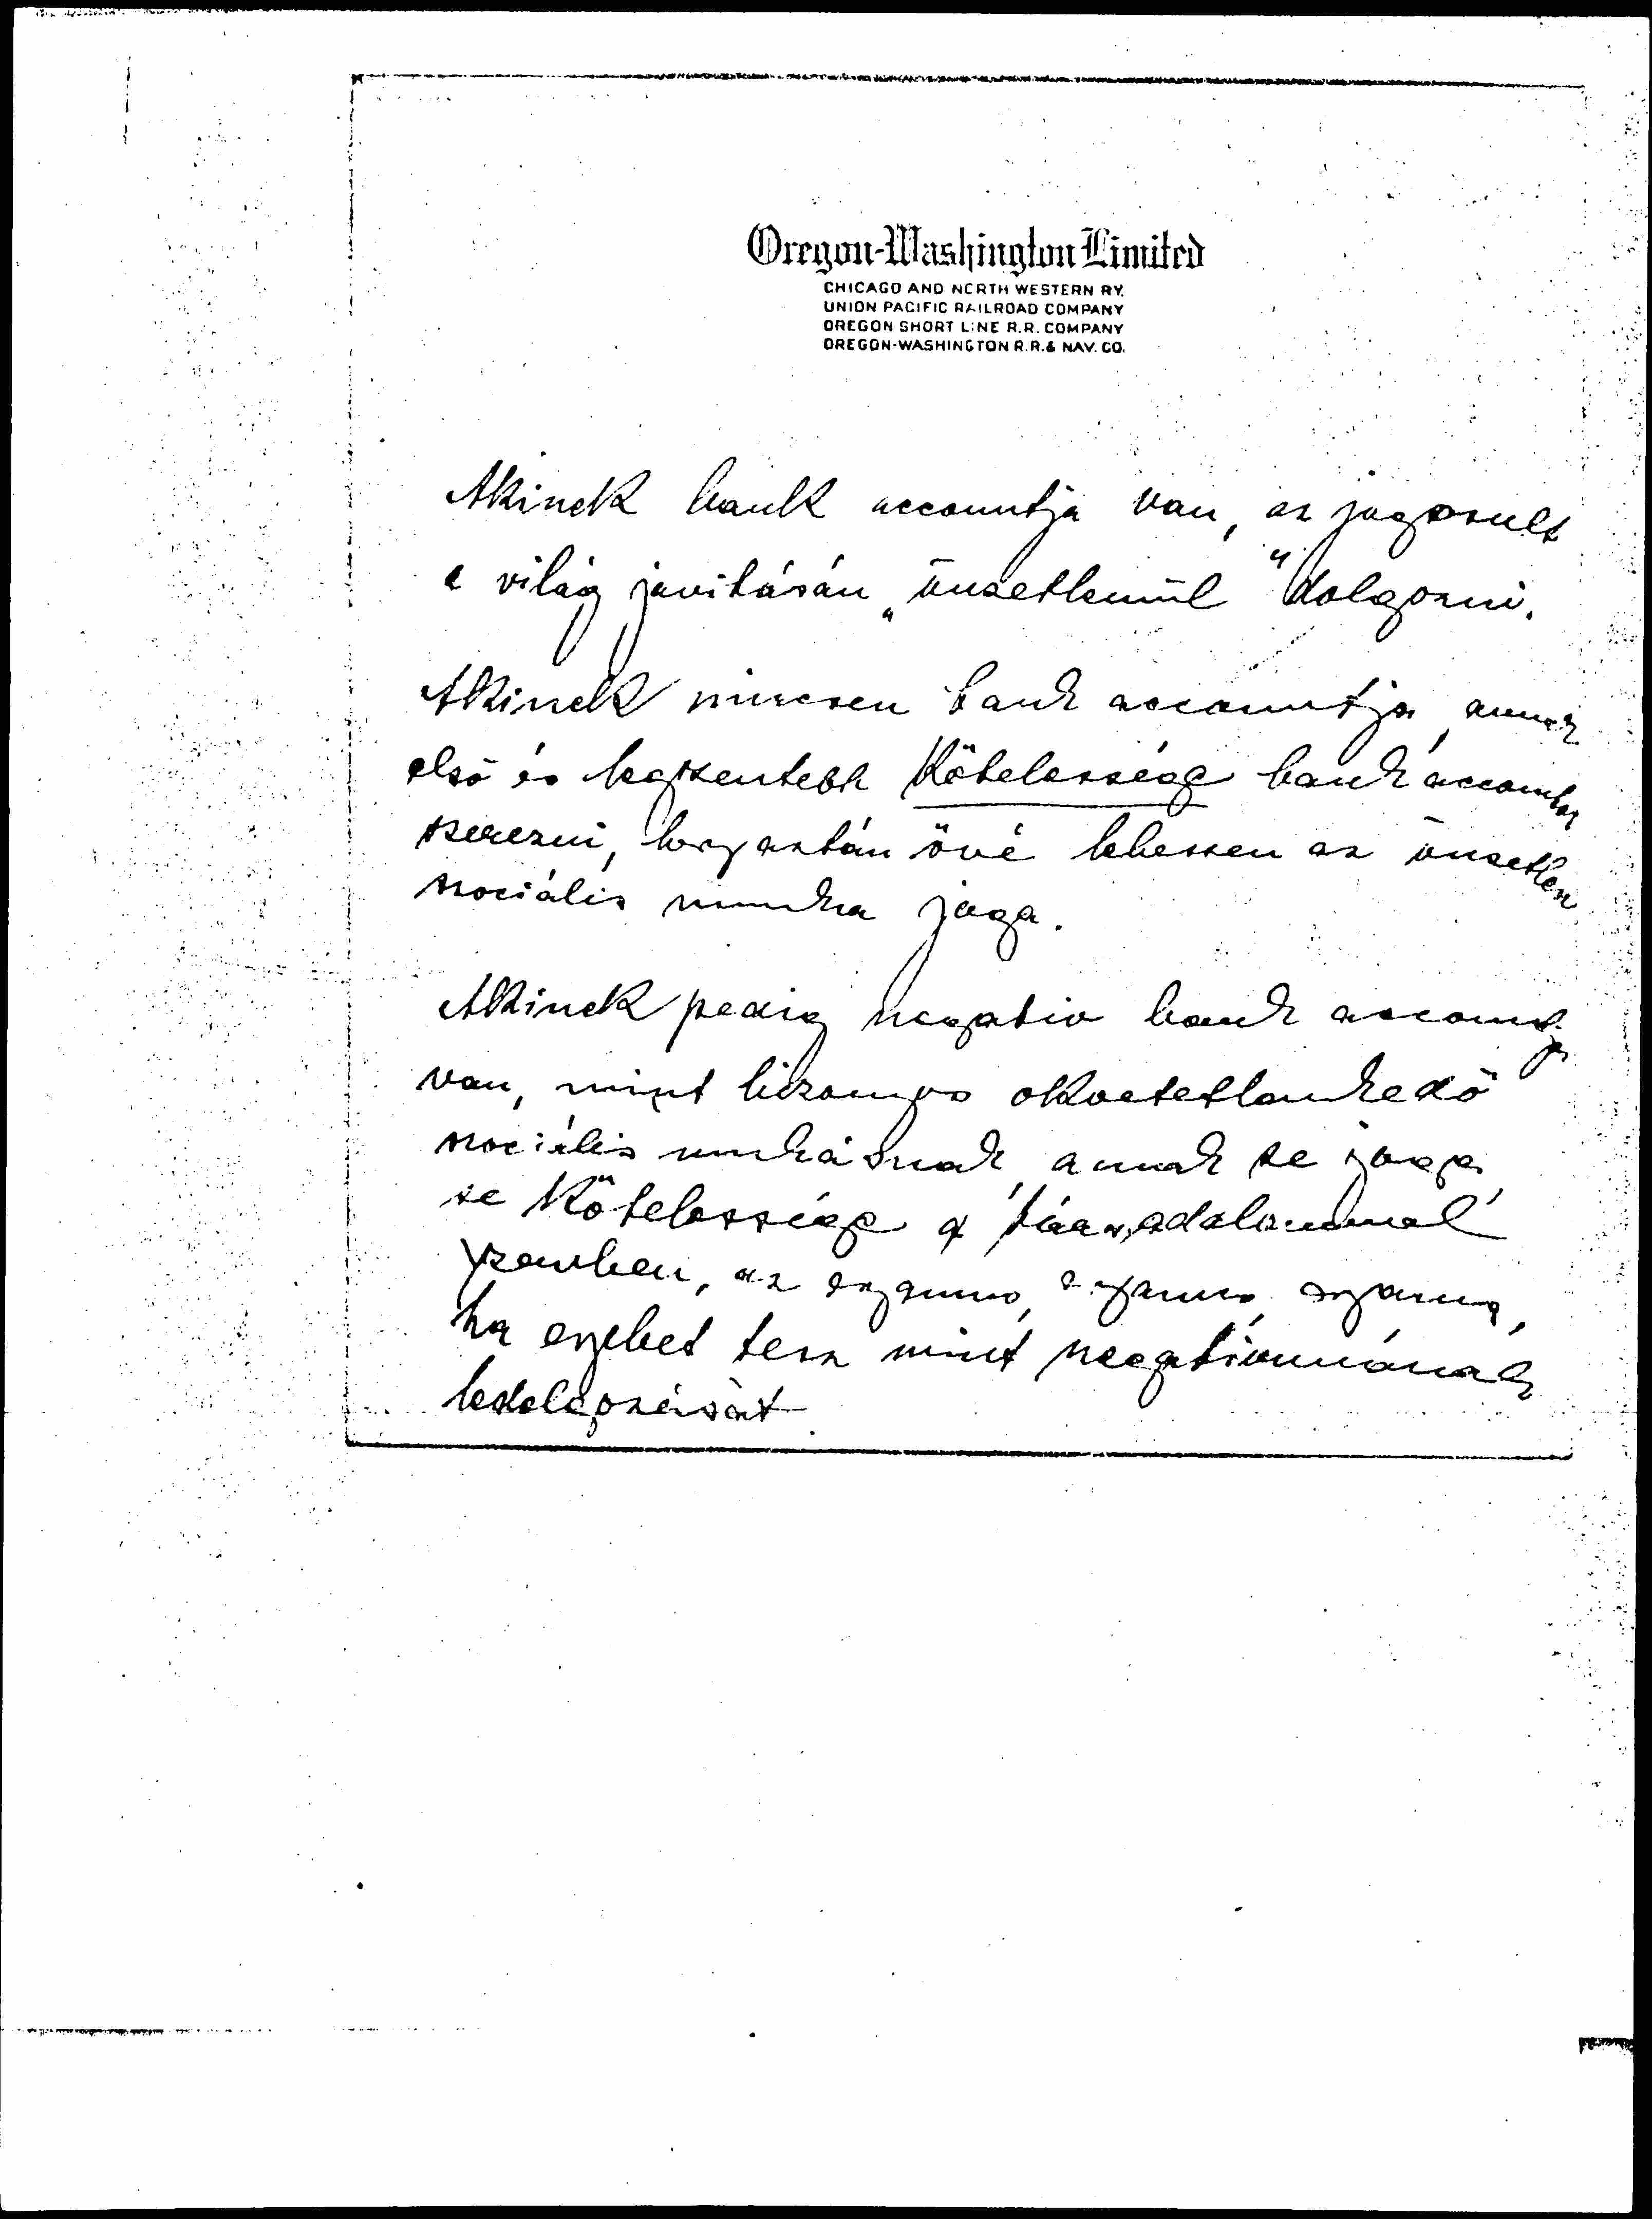 Oregon-Washington Limited
CHICAGO AND NORTH WESTERN RY.
UNION PACIFIC RAILROAD COMPANY
OREGON SHORT LINE R.R. COMPANY
OREGON-WASHINGTON R.R.& NAV. CO.
Akinek bank accountja van, az jogosult
a világ javitásán „önzetlenül" dolgozni.
Akinek nincsen bank accountja, annak
első és legszentebb kötelessége bank accountot
szerezni, hogy aztán övé lehessen az önzetlen
szociális munka joga.
Akinek pedig negativ bank accountja
van, mint bizonyos okvetetlenkedő
szociális munkásnak, annak se joga,
se kötelessége a társadalommal
szemben, az egyenes
ha egyebet tesz mint negativumának
ledolgozását